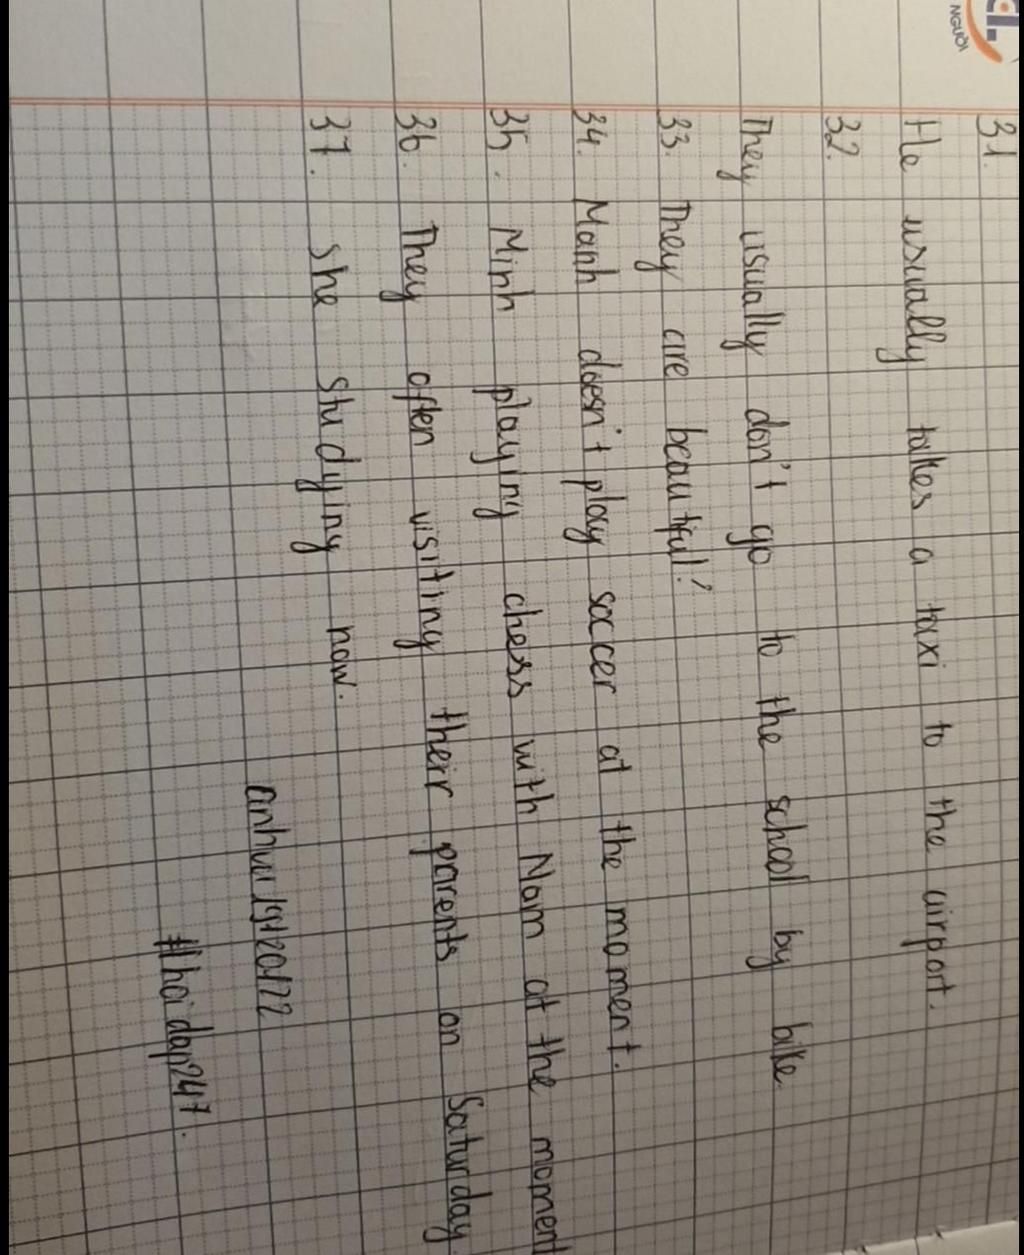 NGƯỜI
31.
He usually takes a taxi to the airport.
32.
They usually don't go to the school by bike
33. They are beautiful!
34. Manh doesn't play soccer at the moment.
35. Minh playing chess with Nam at the moment
36. They often visiting their parents on Saturday.
37. She studying now.
#hoidap247.